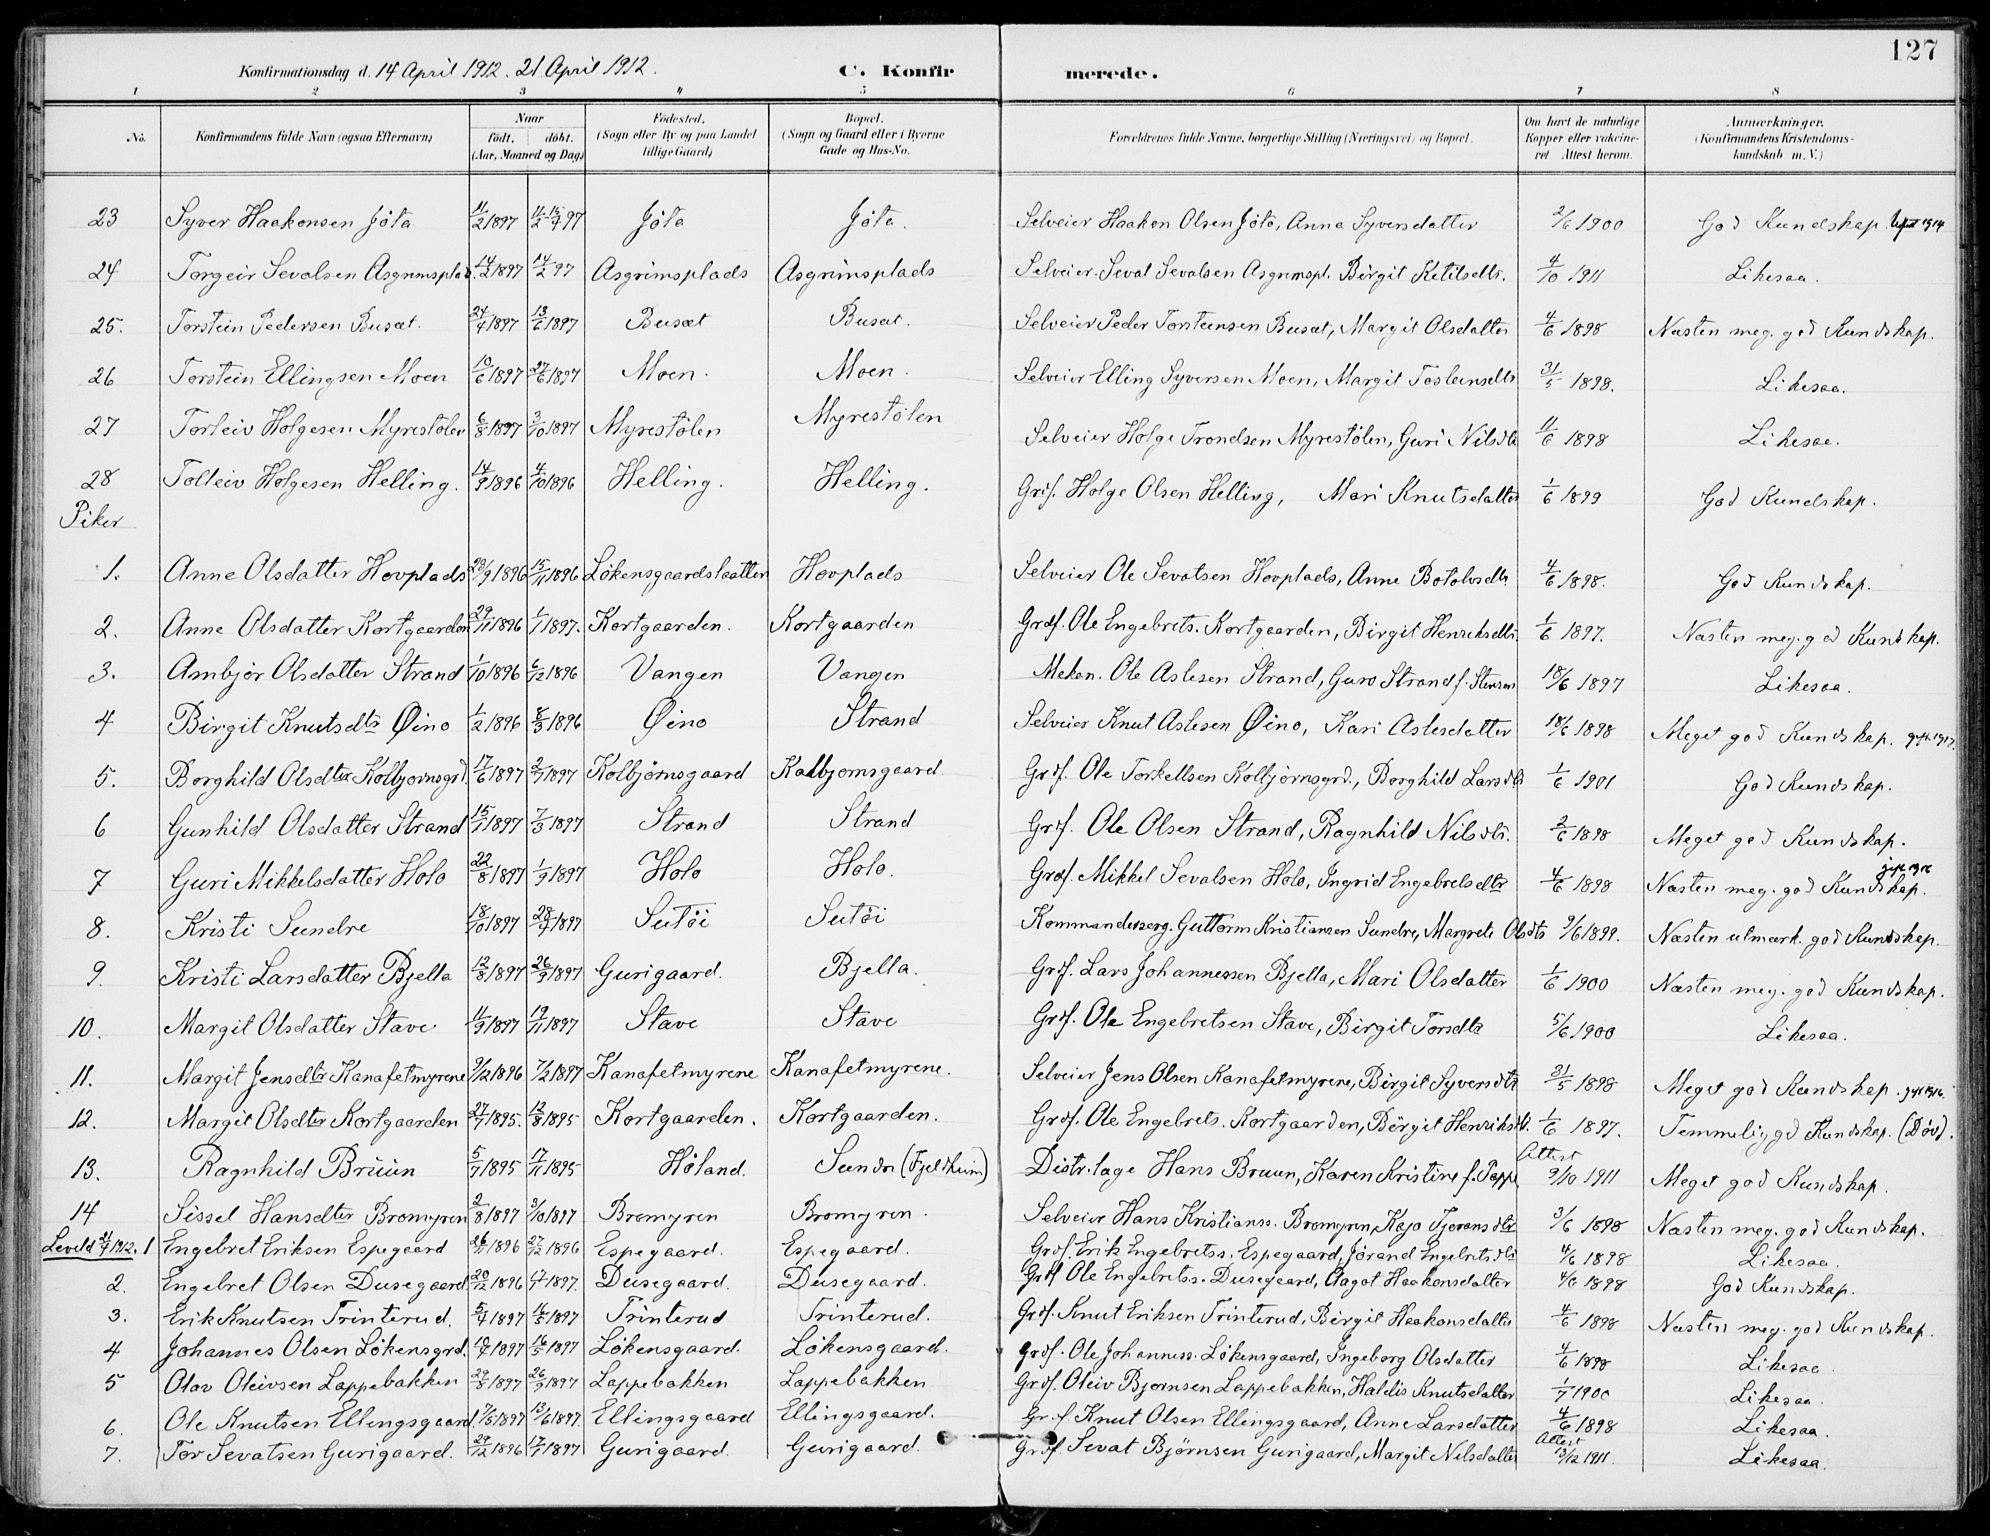 127
Konfirmationsdag d. 14 April 1912. 21 April 1912. C. Konfirmerede.
1 2 3 4 5 6 7 8
No. Konfirmandens fulde Navn (ogsaa Efternavn) Naar født. døbt. (Aar, Maaned og Dag) Fødested. (Sogn eller By og paa Landet tillige Gaard) Bopæl. (Sogn og Gaard eller i Byerne Gade og Hus-No. Forældrenes fulde Navne, borgerlige Stilling (Næringsvei) og Bopæl. Om havt de naturlige Kopper eller vakcineret. Attest herom. Anmærkninger. (Konfirmandens Kristendomskundskab m. V.)
23 Syver Haakonsen Jøta 11/2 1897 11/2 15/4 97 Jøta Jøta. Selveier Haakon Olsen Jøta, Anna Syversdatter 2/6 1900 God Kundskap. 1914
24 Torgeir Sevatsen Asgrimsplads. 14/2 1897 14/2 97 Asgrimsplads Asgrimsplads Selveier Sevat Sevatsen Asgrimspl. Birgit Ketilsdtr. 4/10 1911 Likesaa.
25. Torstein Pedersen Busæt. 24/4 1897 13/6 1897 Busæt Busæt. Selveier Peder Torsteinsen Busæt, Margit Olsdatter 4/6 1898 Næsten meg. god Kundskap.
26 Torstein Ellingsen Moen 10/6 1897 27/6 1897 Moen. Moen. Selveier Elling Syversen Moen, Margit Tosteinsdtr 31/5 1898. Likesaa.
27 Torleiv Holgesen Myrestølen 6/8 1897 3/10 1897 Myrestølen Myrestølen Selveier Holge Trondsen Myrestølen, Guri Nilsdtr 11/6 1898 Likesaa.
28 Tolleiv Holgesen Helling. 14/9 1896 4/10 1896 Helling. Helling. Grif. Holge Olsen Helling, Mari Knutsdatter 1/6 1899 God Kundskap.
Piker
1. Anne Olsdatter Hovplads 23/9 1896 15/11 1896 Løkensgaardslaatten Hovplads Selveier Ole Sevatsen Hovplads, Anne Botolvsdtr 4/6 1898. God Kundskap.
2. Anne Olsdatter Kortgaarden 29/11 1896 1/1 1897. Kortgaarden. Kortgaarden Grdf. Ole Engebrets. Kortgaarden, Birgit Henriksdtr. 1/6 1897. Næsten meg. god Kundskap.
3. Ambjør Olsdatter Strand 1/10 1896 6/12 1896 Vangen Vangen Mekan. Ole Aslesen Strand, Guro Strand f. Stensen 18/6 1897 Likesaa.
4 Birgit Knutsdtr Øino 1/2 1896 8/3 1896 Øino Strand Selveier Knut Aslesen Øino, Kari Aslesdatter 18/6 1898 Meget god Kundskap. gift 1917.
5. Borghild Olsdtr Kolbjørnsgrd. 17/6 1897 2/7 1897 Kolbjørnsgaard Kolbjørnsgaard Grdf. Ole Torkellsen Kolbjørnsgrd., Borghild Larsdtr 1/6 1901 God Kundskap.
6 Gunhild Olsdatter Strand 15/1 1897 7/3 1897 Strand Strand Grdf. Ole Olsen Strand, Ragnhild Nilsdtr. 2/6 1898 Meget god Kundskap.
7 Guri Mikkelsdatter Holo 22/8 1897 1/9 1897 Holo Holo. Grdf. Mikkel Sevatsen Holo, Ingrid Engebretsdtr 4/6 1898 Næsten meg. god Kundskap.
8. Kristi Sundre 18/10 1897 28/11 1897 Sutøi Sutøi Kommandersrg. Guttorm Kristiansen Sundre, Margrete Olsdtr 9/6 1899. Næsten utmærk. god Kundskap.
9. Kristi Larsdatter Bjella 12/8 1897 26/9 1897 Gurigaard. Bjella. Grdf. Lars Johannessen Bjella, Mari Olsdatter 1/6 1900 Næsten meg. god Kundskap.
10. Margit Olsdatter Stave 11/9 1897 19/11 1897 Stave Stave Grdf. Ole Engebretsen Stave, Birgit Torsdtr 5/6 1900 Likesaa.
11. Margit Jensdtr Kanafetmyrene 9/12 1896 7/2 1897 Kanafetmyrene Kanafetmyrene. Selveier Jens Olsen Kanafetmyrene, Birgit Syversdtr 31/5 1898 Meget god Kundskap. gift 1916.
12. Margit Olsdtr Kortgaarden 27/7 1895. 12/8 1895 Kortgaarden. Kortgaarden. Grdf. Ole Engebrets. Kortgaarden, Birgit Henriksdtr. 1/6 1897. Temmelig gd Kundskap. (Døv).
13. Ragnhild Brüun 5/7 1895 17/11 1895 Høland. Sundre (Fjeldheim) Distr.læge Hans Bruun, Karen Kristine f. Pappe Attest 9/10 1911 Meget god Kundskap.
14 Sissel Hansdtr Bromyren 2/8 1897 3/10 1897 Bromyren Bromyren. Selveier Hans Kristianss. Bromyren, Kaja Tjeransdtr 3/6 1898 Næsten meg. god Kundskap.
Leveld 21/4 1912. 1 Engebret Eriksen Espegaard 26/11 1896 27/12 1896 Espegaard. Espegaard. Grdf. Erik Engebretss. Espegaard, Jørand Engebretsdtr 4/6 1898 Likesaa.
2. Engebret Olsen Dusegaard 20/12 1896 17/1 1897. Dusegaard. Dusegaard. Grdf Ole Engebretss. Dusegaard, Aagot Haakonsdatter 4/6 1898 God Kundskap.
3. Erik Knutsen Trinterud. 5/4 1897 16/5 1897 Trinterud Trinterud. Grdf. Knut Eriksen Trinterud, Birgit Haakonsdatter 4/6 1898 Næsten meg. god Kundskap.
4 Johannes Olsen Løkensgrd. 10/4 1897 16/5 1897 Løkensgaard. Løkensgaard. Grdf. Ole Johanness. Løkensgaard, Ingeborg Olsdatter 4/6 1898 Likesaa
5 Olav Oleivsen Lappebakken 29/8 1897 26/9 1897 Lappebakken Lappebakken Grdf. Oleiv Bjørnsen Lappebakken, Haldis Knutsdatter 1/7 1900 Likesaa.
6. Ole Knutsen Ellingsgaard. 17/5 1897 13/6 1897. Ellingsgaard Ellingsgaard. Grdf. Knut Olsen Ellingsgaard, Anne Larsdatter 4/6 1898 Likesaa.
7. Tor Sevatsen Gurigaard. 29/12 1896 17/1 1897 Gurigaard. Gurigaard. Grdf. Sevat Bjørnsen Gurigaard, Margit Nilsdatter Attest 13/12 1911. Likesaa.